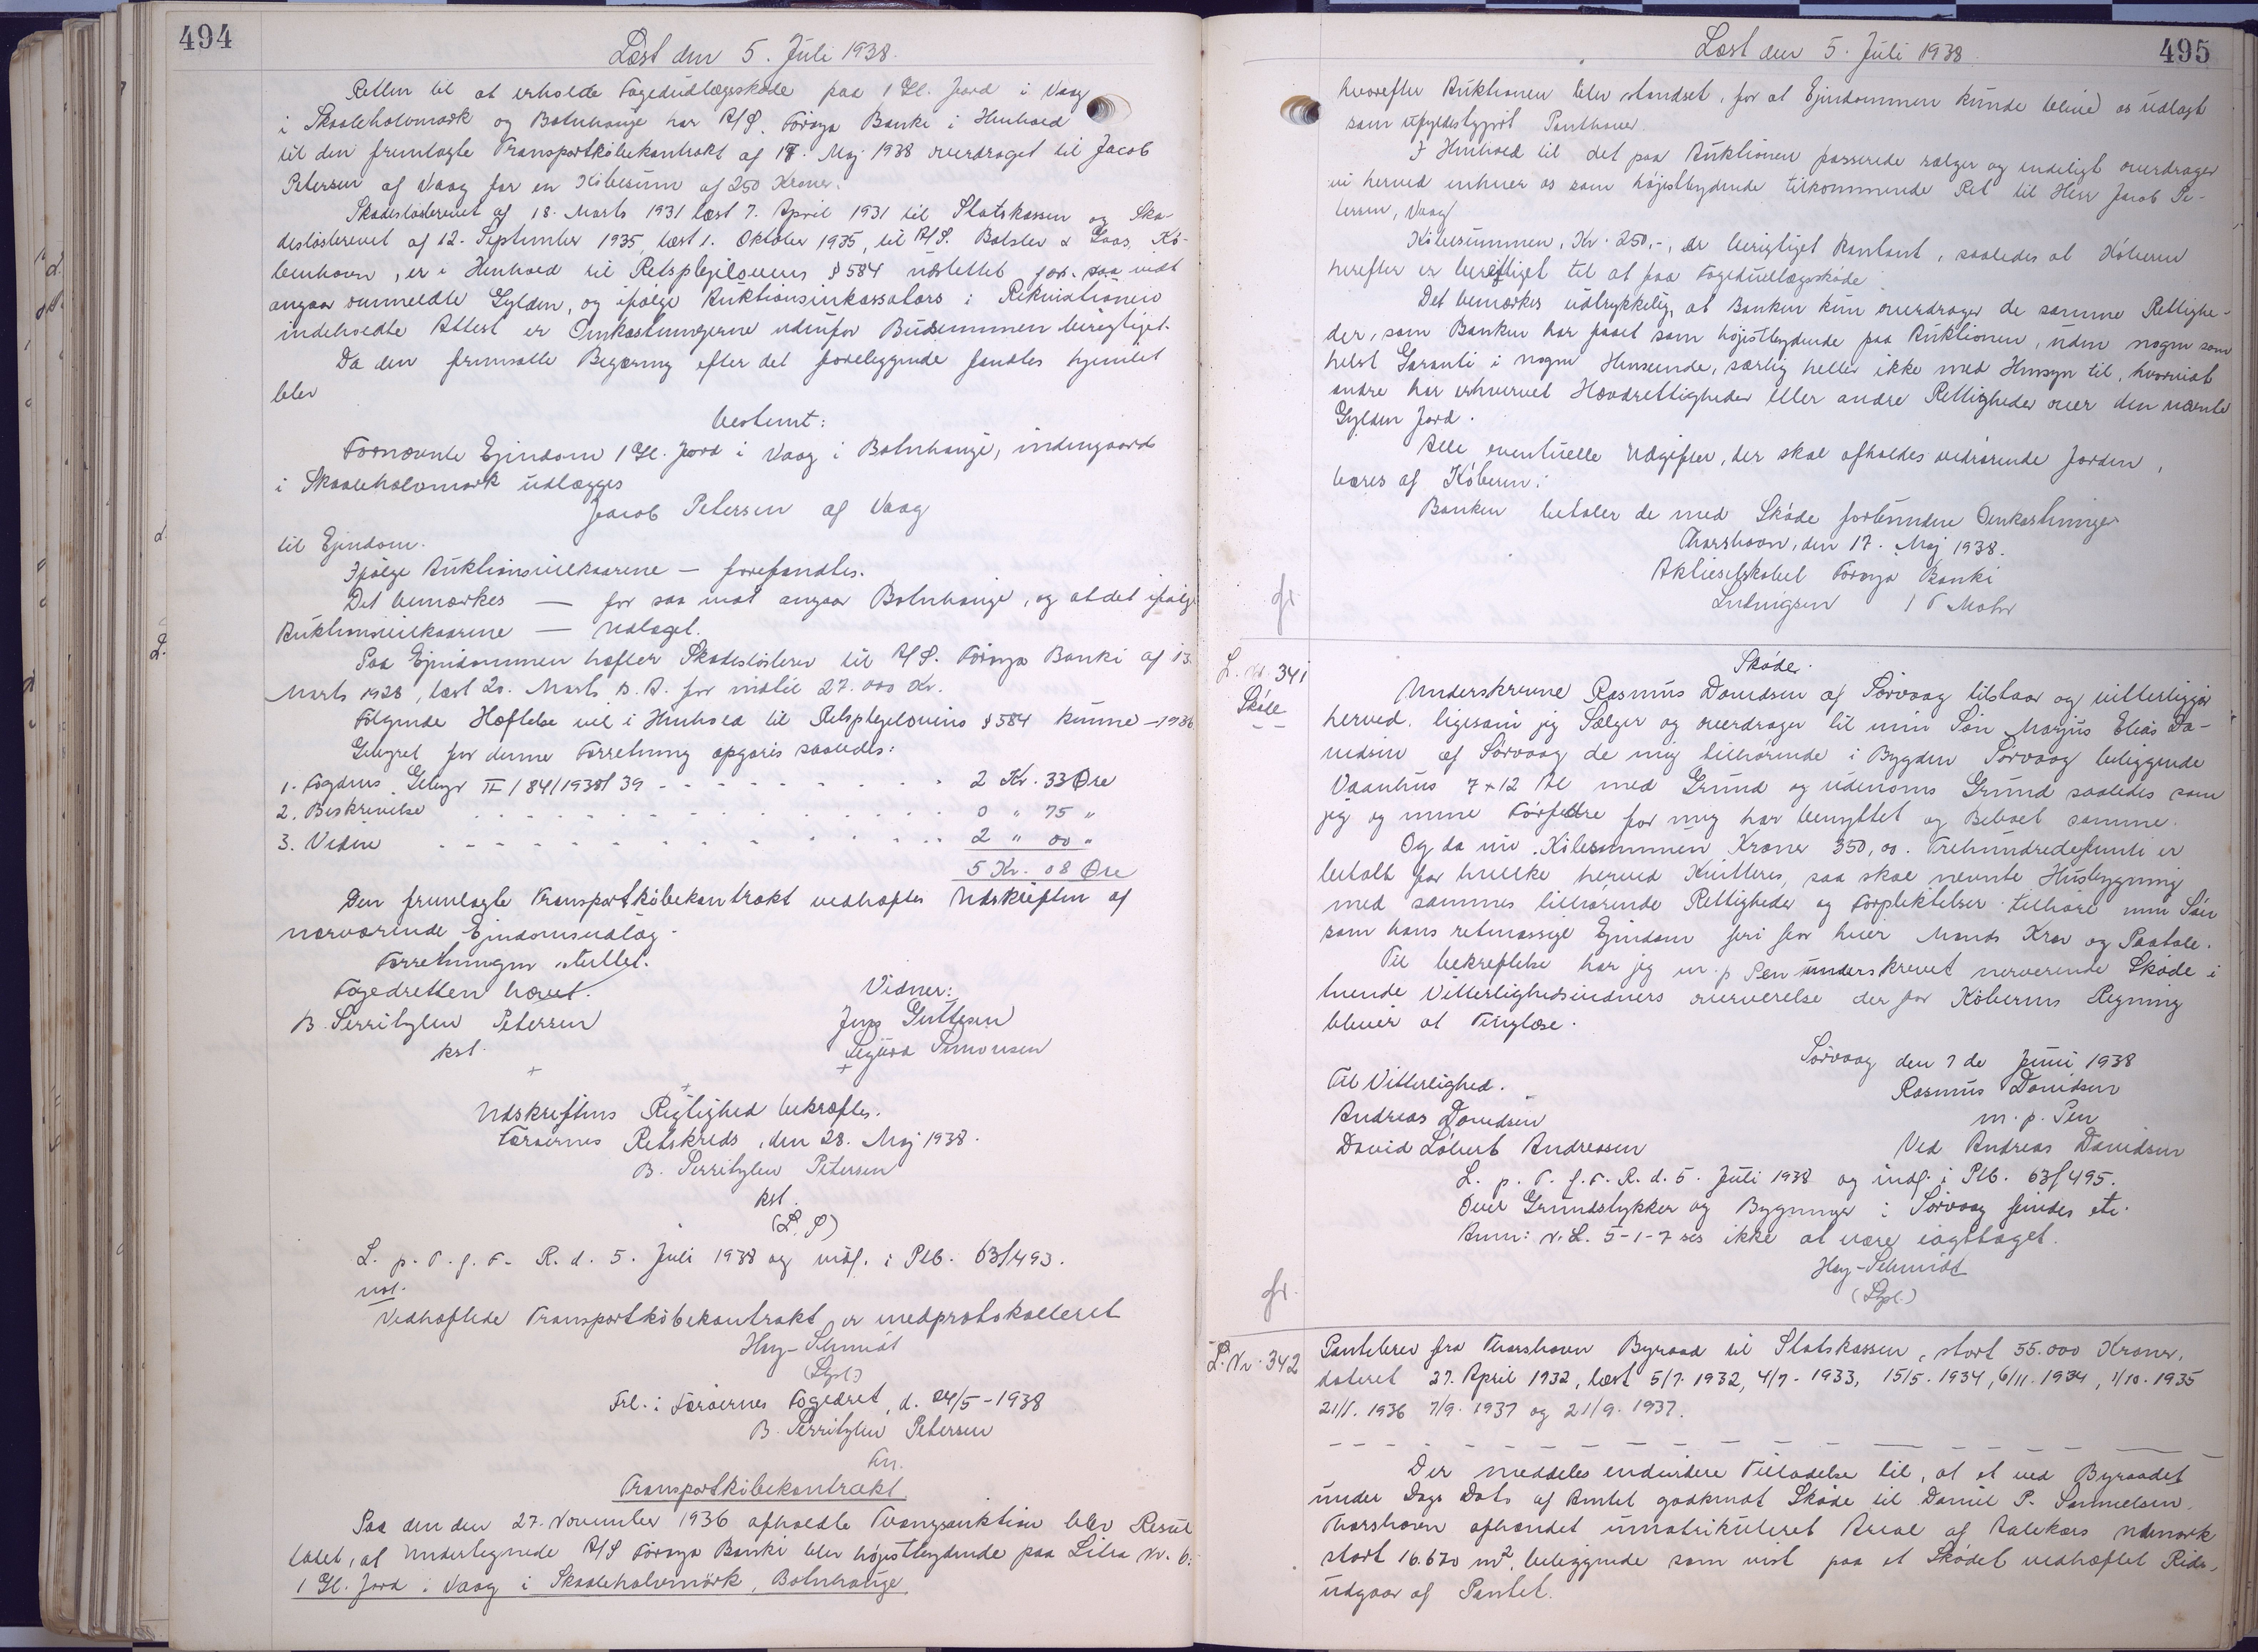 494
Læst den 5. Juli 1938.
Retten til at erholde Fogedudlægsskøde paa 1 Gl. Jord i Vaag
i Skaaleholvmark og Botnhauge har A/S. Föroya Banki i Henhold
til den fremlagte Transportköbekontrakt af 17. Maj 1938 overdraget til Jacob
Petersen af Vaag for en Köbesum af 250 Kroner.
Skadeslösbrevet af 18. Marts 1931 læst 7. April 1931 til Statskassen og Ska-
deslösbrevet af 12. September 1935, læst 1. Oktober 1935, til A/S. Balslev & Kö-
benhavn, er i Henhold til Retsplejelovens § 584 udslettet for saa vidt
angaar ommeldte Gylden, og ifølge Auktionsinkassators i Rekvisitionen
indeholdte Attest er Omkostningerne udenfor Budsummen berigtiget.
Da den fremsatte Begæring efter det foreliggende fandtes hjemlet
blev
bestemt:
Fornævnte Ejendom 1 Gl. Jord i Vaag i Botnhauge, indengaards
i Skaaleholvmark udlægges
Jacob Petersen af Vaag
til Ejendom.
Ifølge Auktionsvilkaarene — forefandtes.
Det bemærkes — for saa vidt angaar Botnhauge, og at det ifølge
Auktionsvilkaarene — Udlæget.
Paa Ejendommen hæfter Skadeslösbrev til A/S. Föroya Banki af 13.
Marts 1928, læst 20. Marts s. A. for indtil 27.000 Kr.
Fölgende Hæftelse vil i Henhold til Retsplejelovens § 584 kunne — 1936.
Gebyret for denne Forretning opgøres saaledes:
1. Fogdens Gebyr II / 84/1938/39 - - - - - 2 Kr. 33 Øre
2. Beskrivelse . . . . . 0 " 75 "
3. Vidne - - - - - 2 " 00 "
5 Kr. 08 Øre
Den fremlagte Transportköbekontrakt vedhæftes Udskriften af
nærværende Ejendomsudlæg.
Forretningen sluttet.
Fogedretten hævet.
Vidner:
B. Perritzlew Petersen
Jens Guttesen
kst.
Sigurd Simonsen
Udskriftens Rigtighed bekræftes.
Færøernes Retskreds, den 28. Maj 1938.
B. Perritzlew Petersen
kst.
(L. S)
L. p. T. f. F. R. d. 5. Juli 1938 og indf. i Plb. 63/493.
Vedhæftede Transportköbekontrakt er medprotokolleret
Hey-Schmidt
(Stpl.)
Frl. i Færøernes Fogedret, d. 24/5-1938
B. Perritzlew Petersen
Fm.
Transportköbekontrakt
Paa den den 27. November 1936 afholdte Tvangsauktion blev Resul
tatet, at undertegnede A/S Föroya Banki blev højestbydende paa Litra Nr. 6:
1 Gl. Jord i Vaag i Skaaleholvmörk, Botnhauge,
495
Læst den 5. Juli 1938
hvorefter Auktionen blev standset, for at Ejendommen kunde blive os udlagt
som ufyldestgjort Panthaver.
I Henhold til det paa Auktionen passerede sælger og endeligt overdrager
vi herved enhver os som højestbydende tilkommende Ret til Herr Jacob Pe-
tersen, Vaag
Köbesummen, Kr. 250,-, er berigtiget kontant, saaledes at Köberen
herefter er berettiget til at faa Fogedudlægsskøde.
Det bemærkes udtrykkelig, at Banken kun overdrager de samme Rettighe-
der, som Banken har faaet som højestbydende paa Auktionen, uden nogen som
helst Garanti i nogen Henseende, særlig heller ikke med Hensyn til, hvorvidt
andre har erhvervet Hævdrettigheder eller andre Rettigheder over den nævnte
Gylden Jord.
Alle eventuelle Udgifter, der skal afholdes vedrørende Jorden,
bæres af Köberen.
Banken betaler de med Skøde forbundne Omkostninger
Thorshavn, den 17. Maj 1938.
Aktieselskabet Föroya Banki
Ludvigsen J F Mohr
fr
L. Nr. 341
Skøde
Skøde.
Underskrevne Rasmus Davidsen af Sörvaag tilstaar og vitterliggør
herved, ligesom jeg Sælger og overdrager til min Søn Morjus Elias Da-
vidsen af Sörvaag de mig tilhørende i Bygden Sörvaag beliggende
Vaanhus 7 x 12 Al med Grund og udenoms Grund saaledes som
jeg og mine Forfedre for mig har benyttet og Beboet samme.
Og da nu Köbesummen Kroner 350,00. Trehundredefemti er
betalt for hvilke herved Kvitteres, saa skal nevnte Husbygning
med sammes tilhørende Rettigheder og Forpliktelser tilhøre min Søn
som hans retmæssige Ejendom feri for hver Mands Krav og Paatale.
Til bekreftelse har jeg m. p Pen underskrevet nerverende Skøde i
tvende Vitterlighedsvidners oververelse der for Köberens Regning
bliver at Tinglæse.
Sörvaag den 7 de Juni 1938
Til Vitterlighed.
Rasmus Davidsen
Andreas Davidsen
m. p. Pen
David Löbert Andreasen
Ved Andreas Davidsen
L. p. T. f. F. R. d. 5. Juli 1938 og indf. i Plb. 63/495.
Over Grundstykker og Bygninger i Sörvaag findes etc.
Anm: N. L. 5-1-7 ses ikke at være iagttaget.
Hey-Schmidt
(Stpl.)
fr.
L. Nr. 342
Pantebrev fra Thorshavn Byraad til Statskassen, stort 55.000 Kroner,
dateret 27. April 1932, læst 5/7. 1932, 4/7. 1933, 15/5. 1934, 6/11. 1934, 1/10. 1935
21/1. 1936 7/9. 1937 og 21/9. 1937.
Der meddeles endvidere Tilladelse til, at et ved Byraadet
under Dags Dato af Amtet godkendt Skøde til Daniel P. Samuelsen,
Thorshavn afhændet umatrikuleret Areal af Aalekærs Udmark
stort 16.670 m², beliggende som vist paa et Skødet vedhæftet Rids,
udgaar af Pantet.